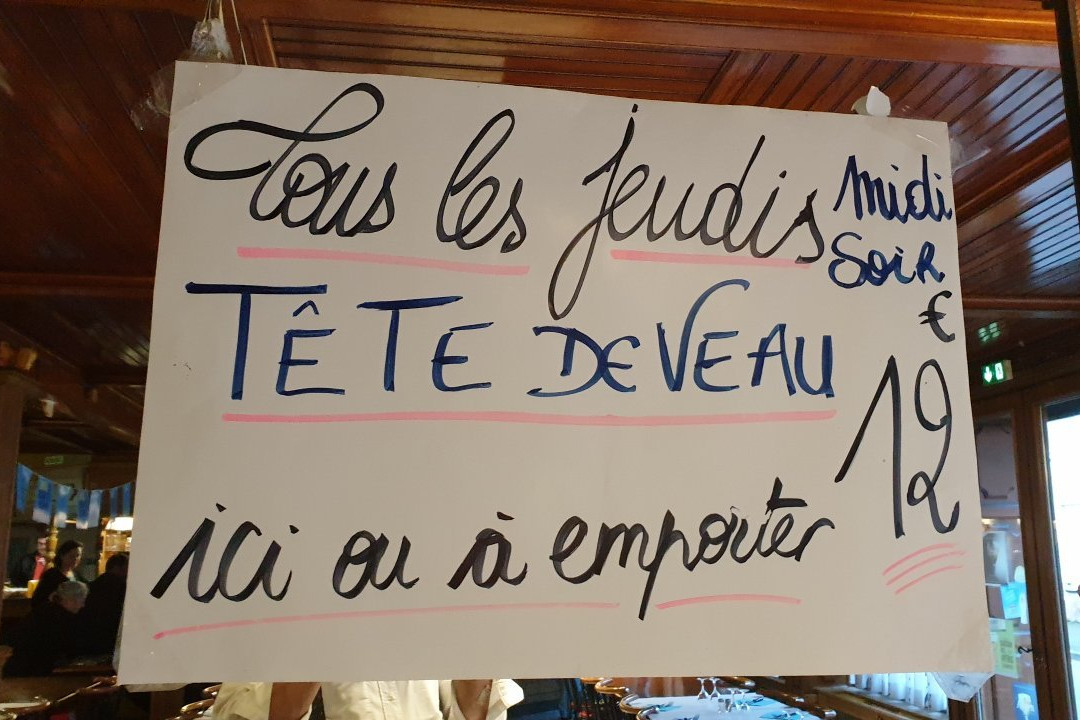 Tous les jeudis
midi
soir
TÊTE DE VEAU
€
12
ici ou à emporter